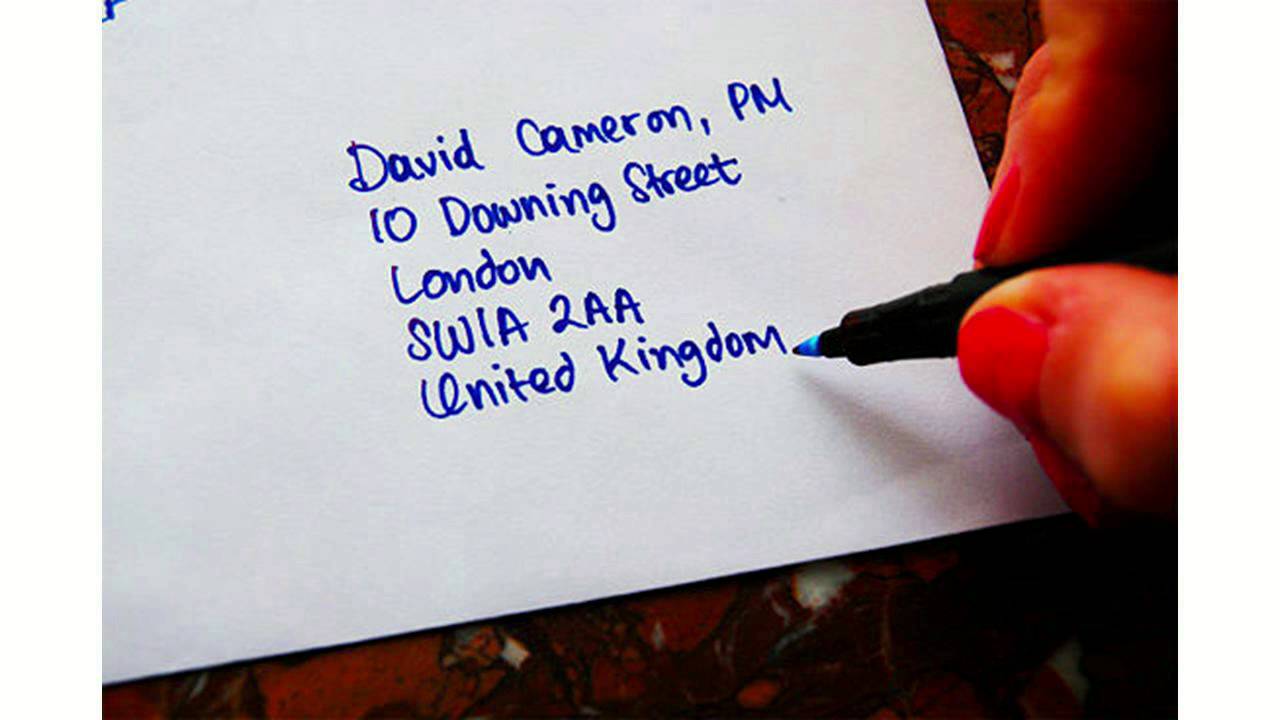 David Cameron, PM
10 Downing Street
London
SW1A 2AA
United Kingdom